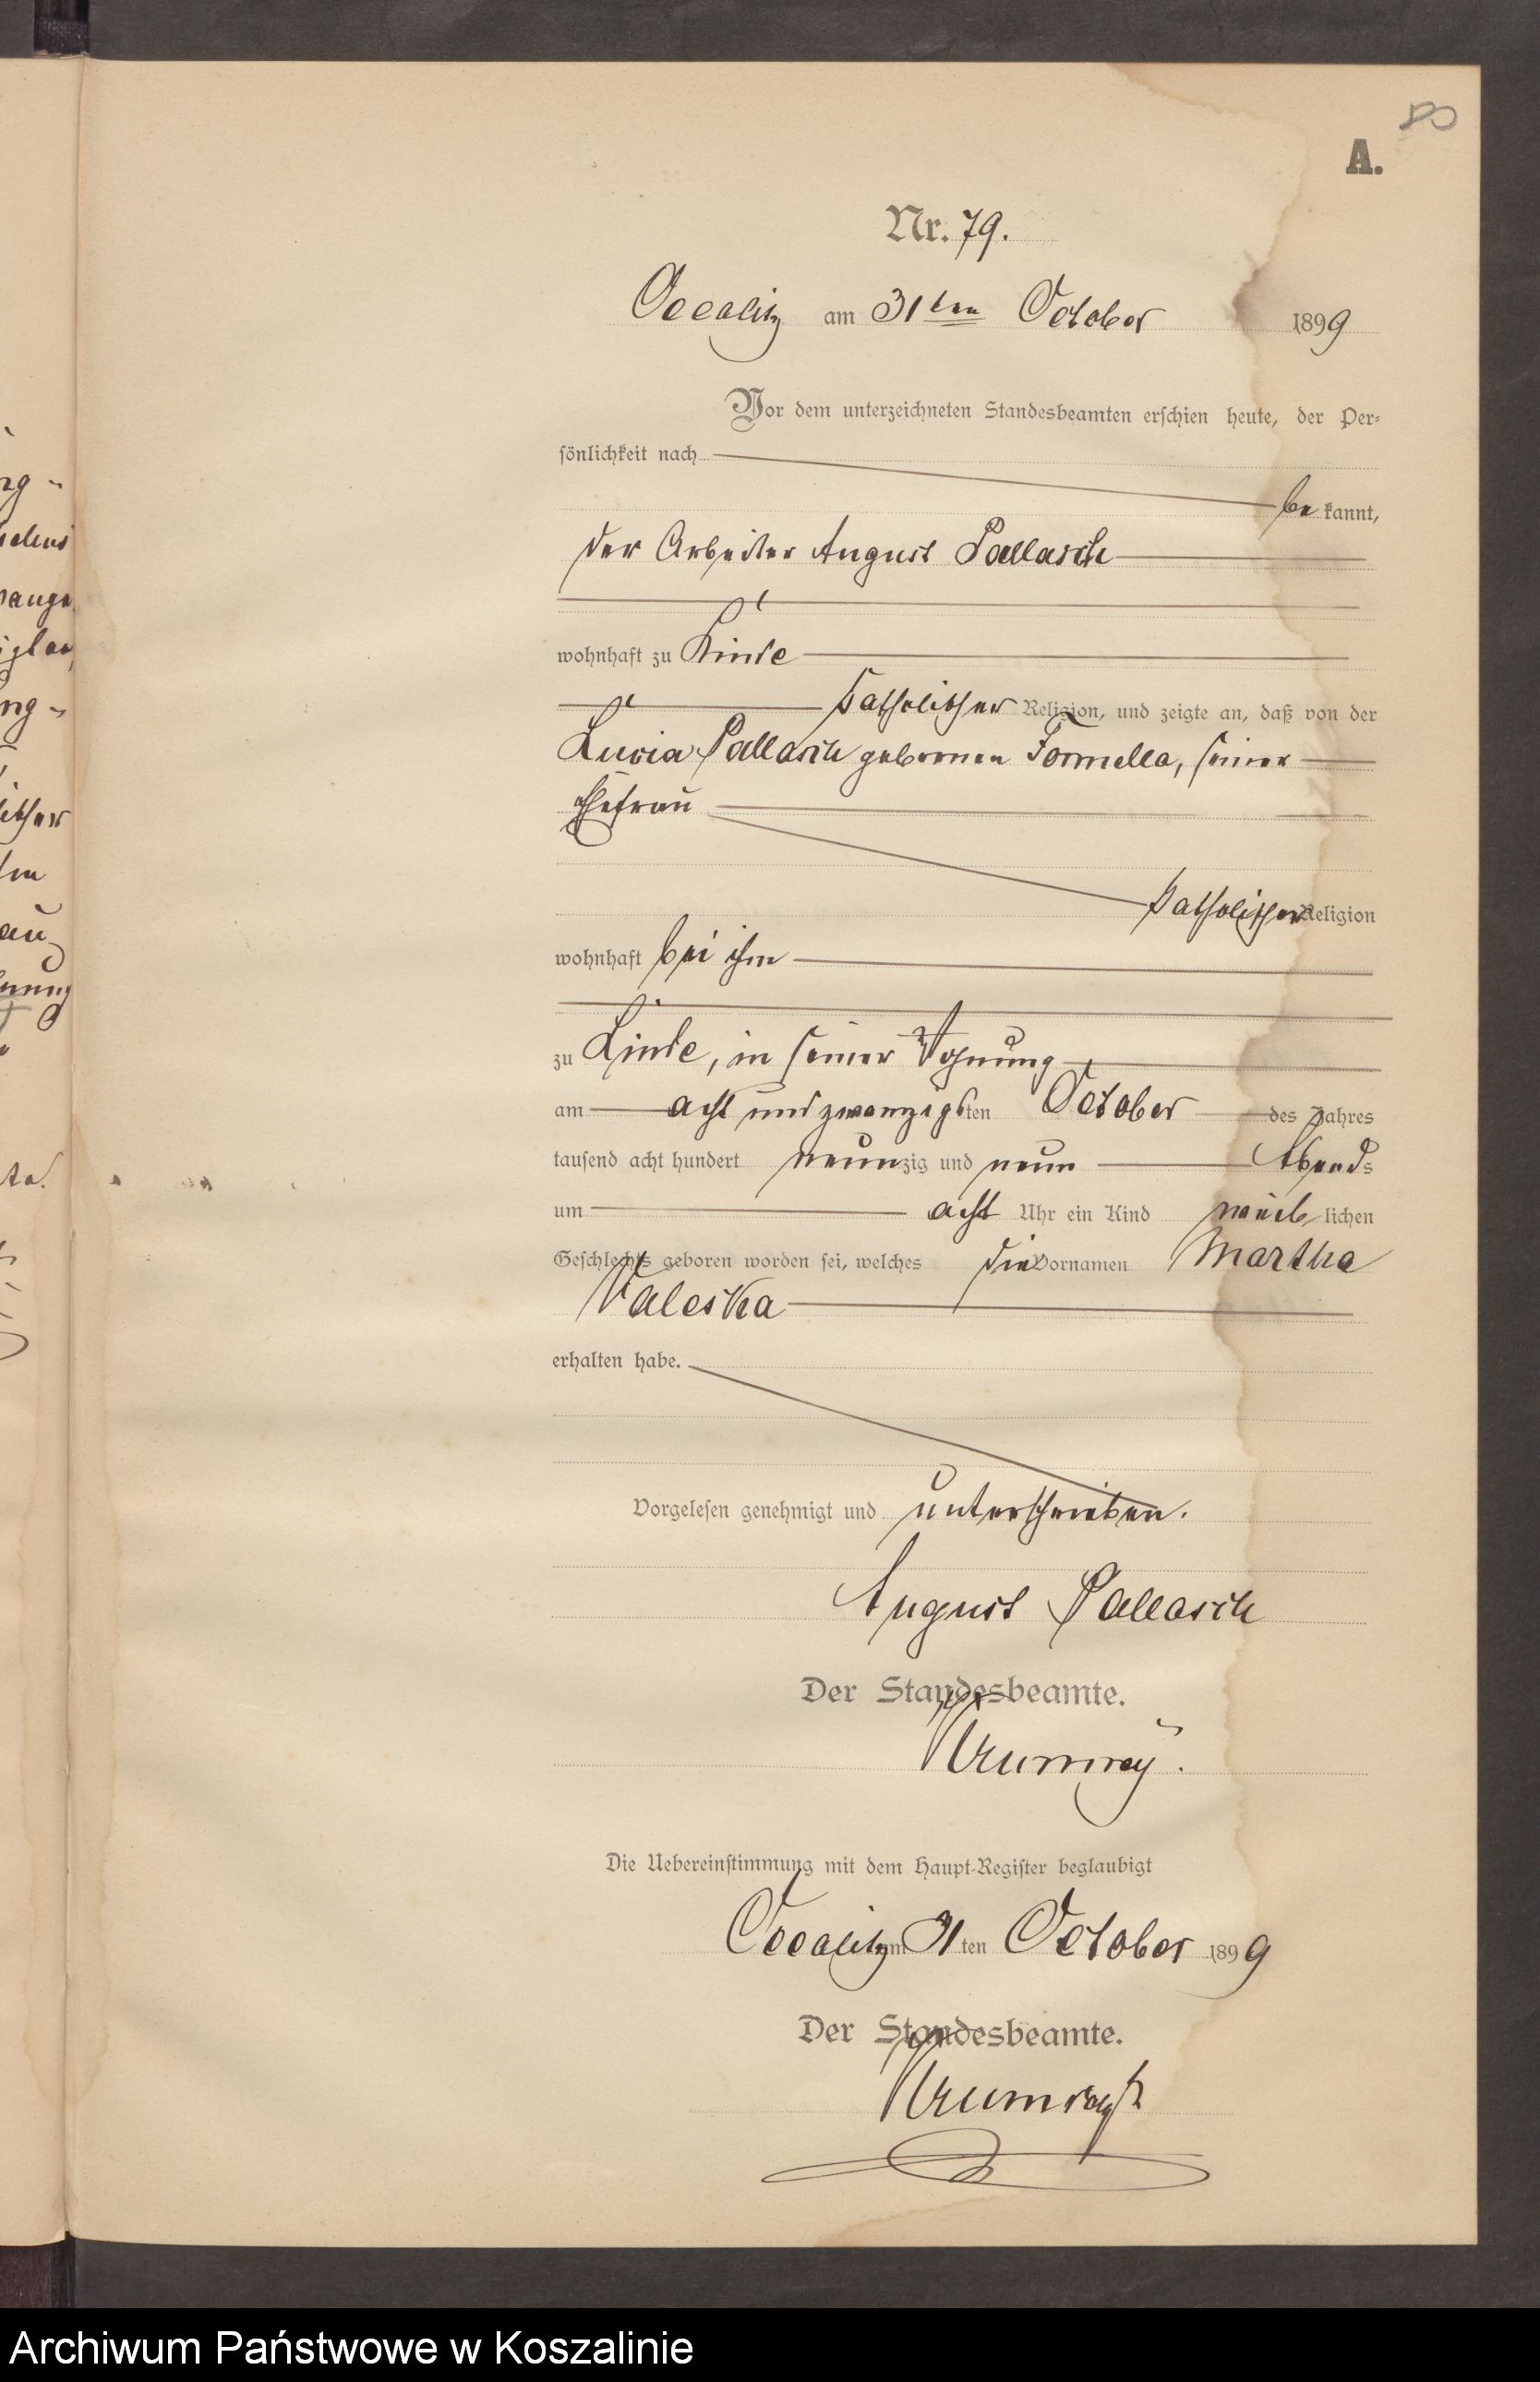 80
A.
Nr. 79.
Occalitz am 31ten October 1899
Vor dem unterzeichneten Standesbeamten erschien heute, der Per-
sönlichkeit nach
be kannt,
der Arbeiter August Pallasch
wohnhaft zu Linde
katholischer Religion, und zeigte an, daß von der
Lucia Pallasch geborenen Formella, seiner
Ehefrau
katholischer Religion
wohnhaft bei ihm
zu Linde, in seiner Wohnung
am acht und zwanzigsten October des Jahres
tausend acht hundert neunzig und neun Abends
um acht Uhr ein Kind weiblichen
Geschlechts geboren worden sei, welches die Vornamen Martha
Valeska
erhalten habe.
Vorgelesen genehmigt und unterschrieben.
August Pallasch
Der Standesbeamte.
Die Uebereinstimmung mit dem Haupt-Register beglaubigt
Occalitz am 31ten October 1899
Der Standesbeamte.
Archiwum Państwowe w Koszalinie